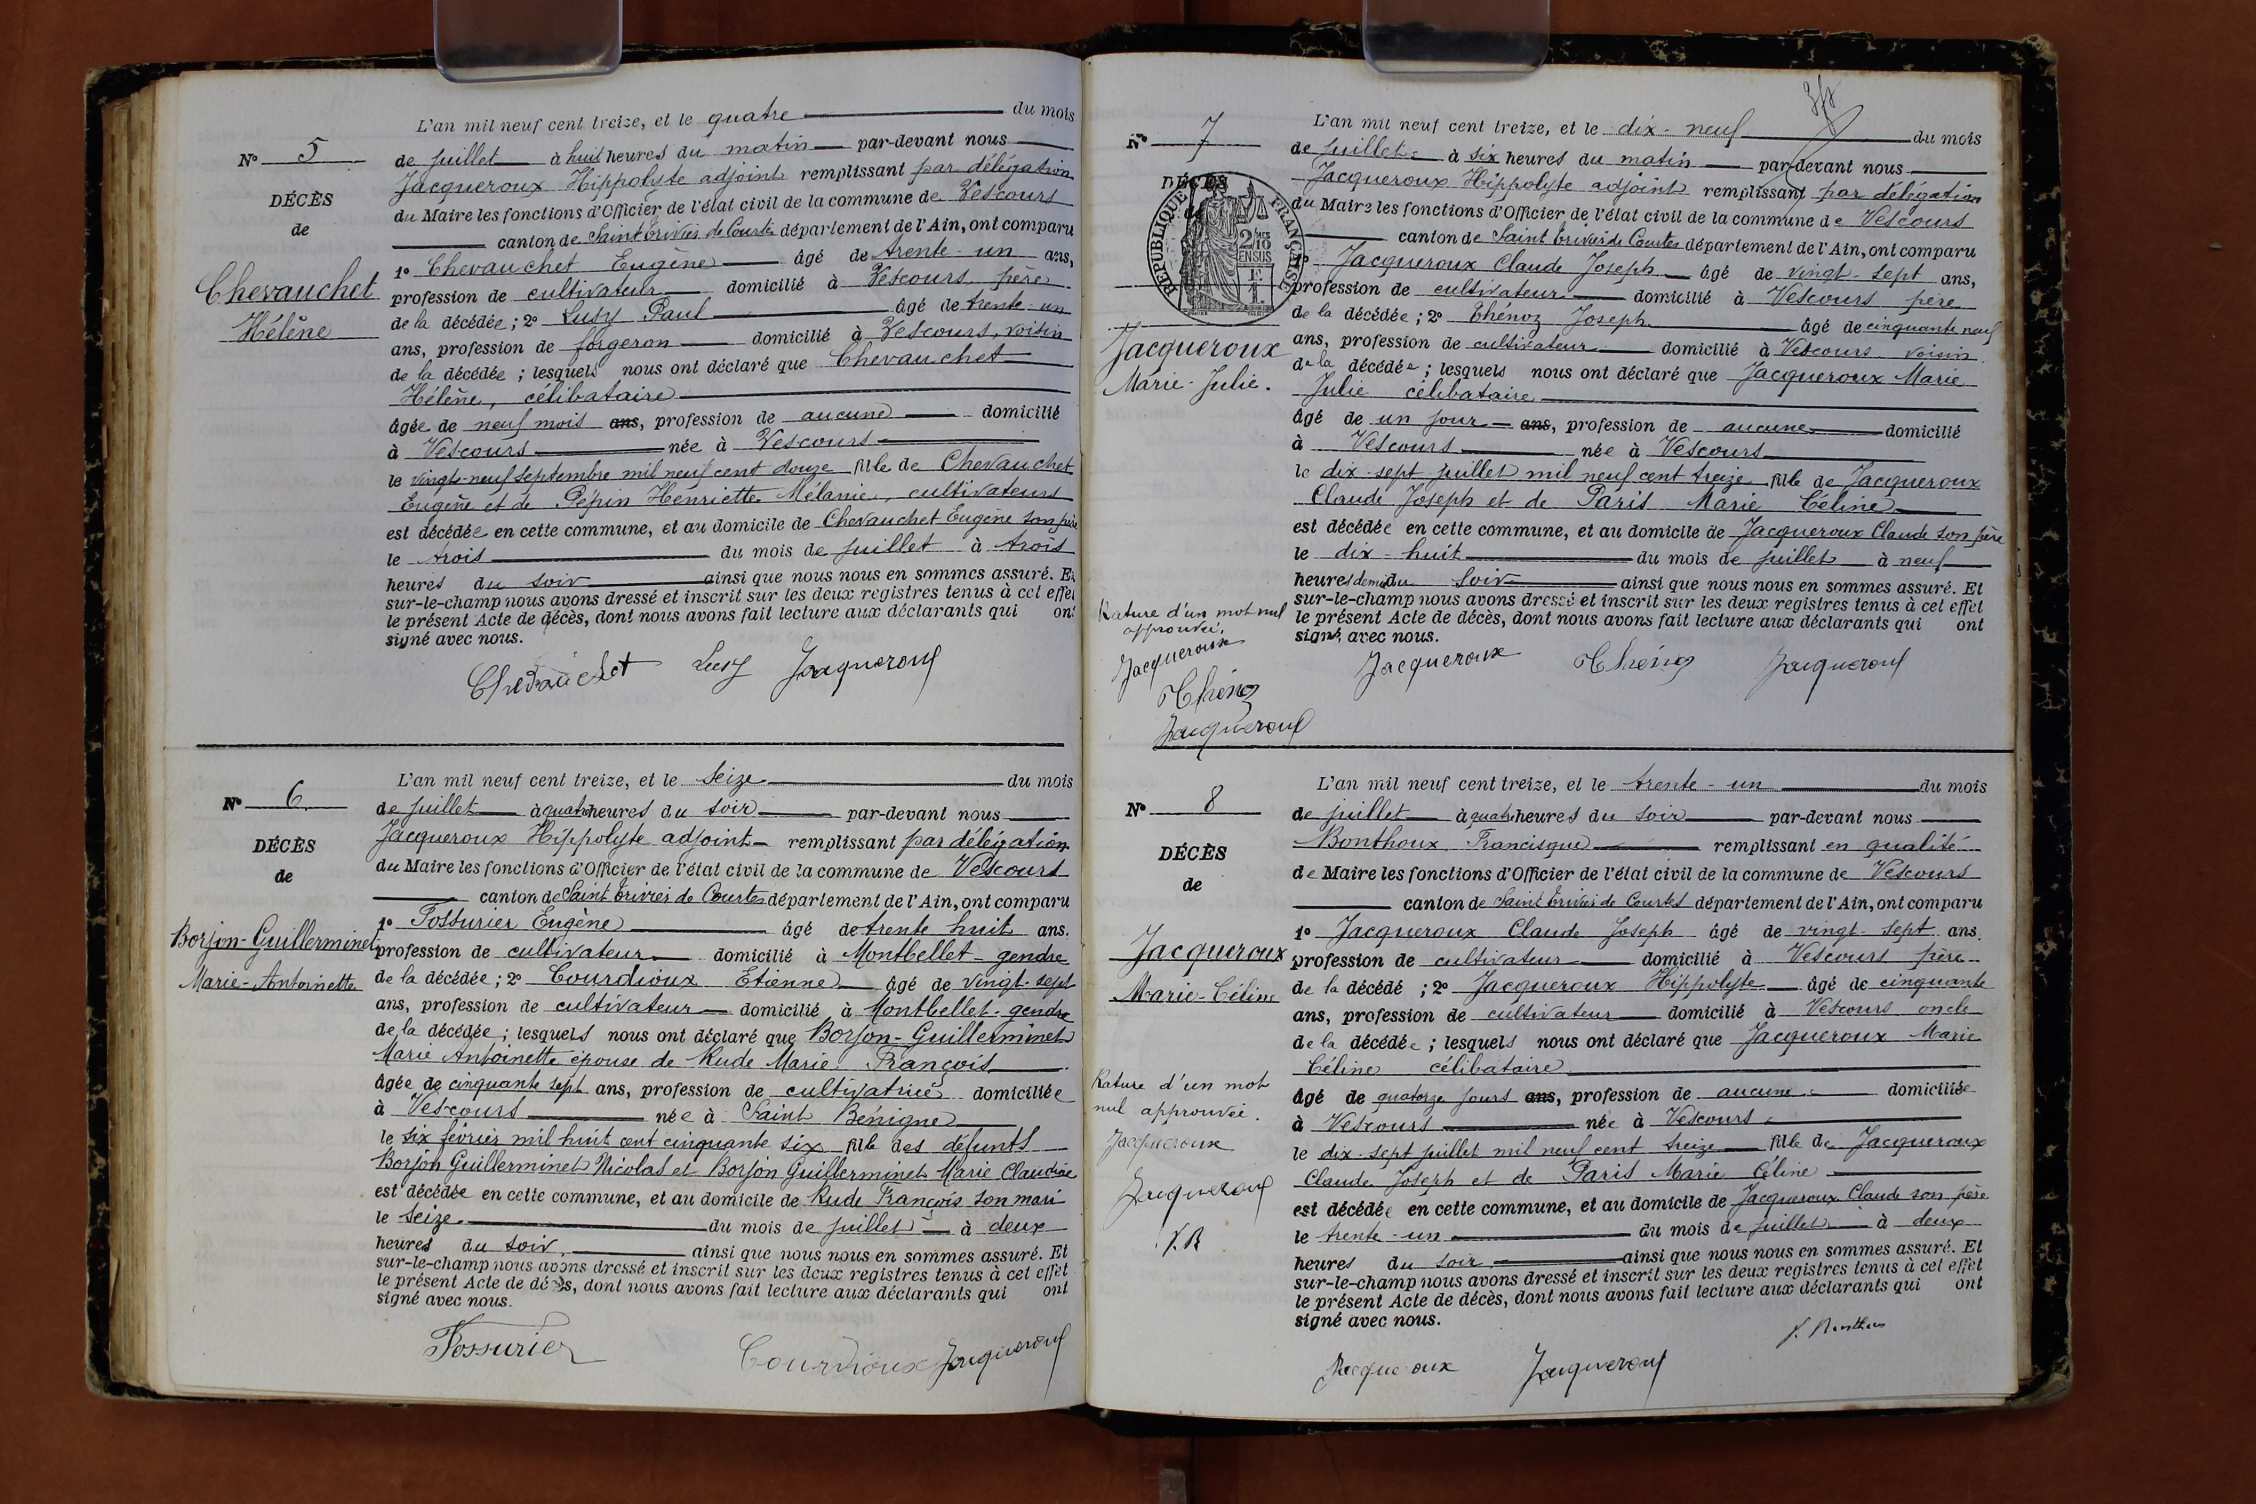 N° 5
DÉCÈS
de
Chevauchet
Hélène
L'an mil neuf cent treize, et le quatre du mois
de juillet à huit heures du matin par-devant nous
Jacqueroux Hippolyte adjoint remplissant par délégation
du Maire les fonctions d'Officier de l'état civil de la commune de Vescours
canton de Saint Trivier de Courtes département de l'Ain, ont comparu
1° Chevauchet Eugène âgé de trente-un ans,
profession de cultivateur domicilié à Vescours, père
de la décédée ; 2° Lusy Paul âgé de trente-un
ans, profession de forgeron domicilié à Vescours, voisin
de la décédée ; lesquels nous ont déclaré que Chevauchet
Hélène, célibataire
âgée de neuf mois ans, profession de aucune domicilié
à Vescours née à Vescours
le vingt-neuf septembre mil neuf cent douze fille de Chevauchet
Eugène et de Pépin Henriette Mélanie, cultivateurs
est décédée en cette commune, et au domicile de Chevauchet Eugène son père
le trois du mois de juillet à trois
heures du soir ainsi que nous nous en sommes assuré. Et
sur-le-champ nous avons dressé et inscrit sur les deux registres tenus à cet effet
le présent Acte de décès, dont nous avons fait lecture aux déclarants qui ont
signé avec nous.
Chevauchet Lusy Jacqueroux
N° 6
DÉCÈS
de
Borjon-Guillerminet
Marie-Antoinette
L'an mil neuf cent treize, et le seize du mois
de juillet à quatre heures du soir par-devant nous
Jacqueroux Hippolyte adjoint remplissant par délégation
du Maire les fonctions d'Officier de l'état civil de la commune de Vescours
canton de Saint Trivier de Courtes département de l'Ain, ont comparu
1° Fossurier Eugène âgé de trente huit ans.
profession de cultivateur domicilié à Montbellet - gendre
de la décédée ; 2° Courdioux Etienne âgé de vingt-sept
ans, profession de cultivateur domicilié à Montbellet - gendre
de la décédée ; lesquels nous ont déclaré que Borjon-Guillerminet
Marie Antoinette épouse de Rude Marie François
âgée de cinquante sept ans, profession de cultivatrice domiciliée
à Vescours née à Saint Bénigne
le six février mil huit cent cinquante six fille des défunts
Borjon Guillerminet Nicolas et Borjon Guillerminet Marie Claudine
est décédée en cette commune, et au domicile de Rude François son mari
le seize du mois de juillet à deux
heures du soir ainsi que nous nous en sommes assuré. Et
sur-le-champ nous avons dressé et inscrit sur les deux registres tenus à cet effet
le présent Acte de décès, dont nous avons fait lecture aux déclarants qui ont
signé avec nous.
Fossurier Courdioux Jacqueroux
N° 7
DÉCÈS
de
RÉPUBLIQUE FRANÇAISE
2/10
EN SUS
Jacqueroux
Marie-Julie.
L'an mil neuf cent treize, et le dix-neuf du mois
de juillet à six heures du matin par-devant nous
Jacqueroux Hippolyte adjoint remplissant par délégation
du Maire les fonctions d'Officier de l'état civil de la commune de Vescours
canton de Saint Trivier de Courtes département de l'Ain, ont comparu
Jacqueroux Claude Joseph âgé de vingt-sept ans,
profession de cultivateur domicilié à Vescours père
de la décédée ; 2° Thénoz Joseph âgé de cinquante neuf
ans, profession de cultivateur domicilié à Vescours voisin
de la décédée ; lesquels nous ont déclaré que Jacqueroux Marie
Julie célibataire
âgé de un jour ans, profession de aucune domicilié
à Vescours née à Vescours
le dix-sept juillet mil neuf cent treize fille de Jacqueroux
Claude Joseph et de Paris Marie Céline
est décédée en cette commune, et au domicile de Jacqueroux Claude son père
le dix-huit du mois de juillet à neuf
heures demi du soir ainsi que nous nous en sommes assuré. Et
sur-le-champ nous avons dressé et inscrit sur les deux registres tenus à cet effet
le présent Acte de décès, dont nous avons fait lecture aux déclarants qui ont
signé avec nous.
Rature d'un mot nul
approuvée.
Jacqueroux
Thénoz
Jacqueroux
Jacqueroux Thénoz Jacqueroux
N° 8
DÉCÈS
de
Jacqueroux
Marie-Céline
L'an mil neuf cent treize, et le trente-un du mois
de juillet à quatre heures du soir par-devant nous
Bonthoux Francisque remplissant en qualité
de Maire les fonctions d'Officier de l'état civil de la commune de Vescours
canton de Saint Trivier de Courtes département de l'Ain, ont comparu
1° Jacqueroux Claude Joseph âgé de vingt-sept ans
profession de cultivateur domicilié à Vescours père
de la décédé ; 2° Jacqueroux Hippolyte âgé de cinquante
ans, profession de cultivateur domicilié à Vescours oncle
de la décédée ; lesquels nous ont déclaré que Jacqueroux Marie
Céline célibataire
âgé de quatorze jours ans, profession de aucune domiciliée
à Vescours née à Vescours
le dix-sept juillet mil neuf cent treize fille de Jacqueroux
Claude Joseph et de Paris Marie Céline
est décédée en cette commune, et au domicile de Jacqueroux Claude son père
le trente-un du mois de juillet à deux
heures du soir ainsi que nous nous en sommes assuré. Et
sur-le-champ nous avons dressé et inscrit sur les deux registres tenus à cet effet
le présent Acte de décès, dont nous avons fait lecture aux déclarants qui ont
signé avec nous.
Rature d'un mot
nul approuvée.
Jacqueroux
Jacqueroux
F.B
F. Bonthoux
Jacqueroux Jacqueroux